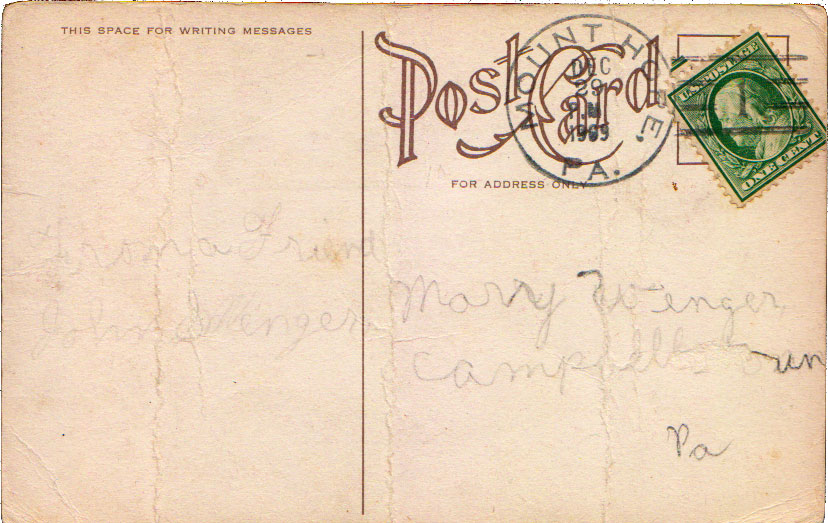 THIS SPACE FOR WRITING MESSAGES
Post Card
MOUNT HOPE.
DEC
29
PA.
FOR ADDRESS ONLY
U.S. POSTAGE
ONE CENT
From a Friend
John Wenger
Marry Wenger
Campbelltown
Pa